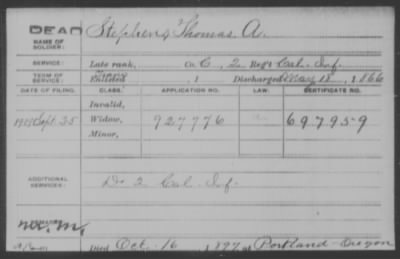 DEAD
NAME OF SOLDIER: Stephens, Thomas A.
SERVICE: Late rank, Co. C, 2 Reg't Cal. Inf.
TERM OF SERVICE: Enlisted , 1 Discharged May 15, 1866
DATE OF FILING. CLASS. APPLICATION NO. LAW. CERTIFICATE NO.
Invalid,
1909 Sept 25 Widow, 927776 697959
Minor,
ADDITIONAL SERVICES: D 2 Cal. Inf.
REMARKS:
Died Oct. 16, 1897 at Portland - Oregon